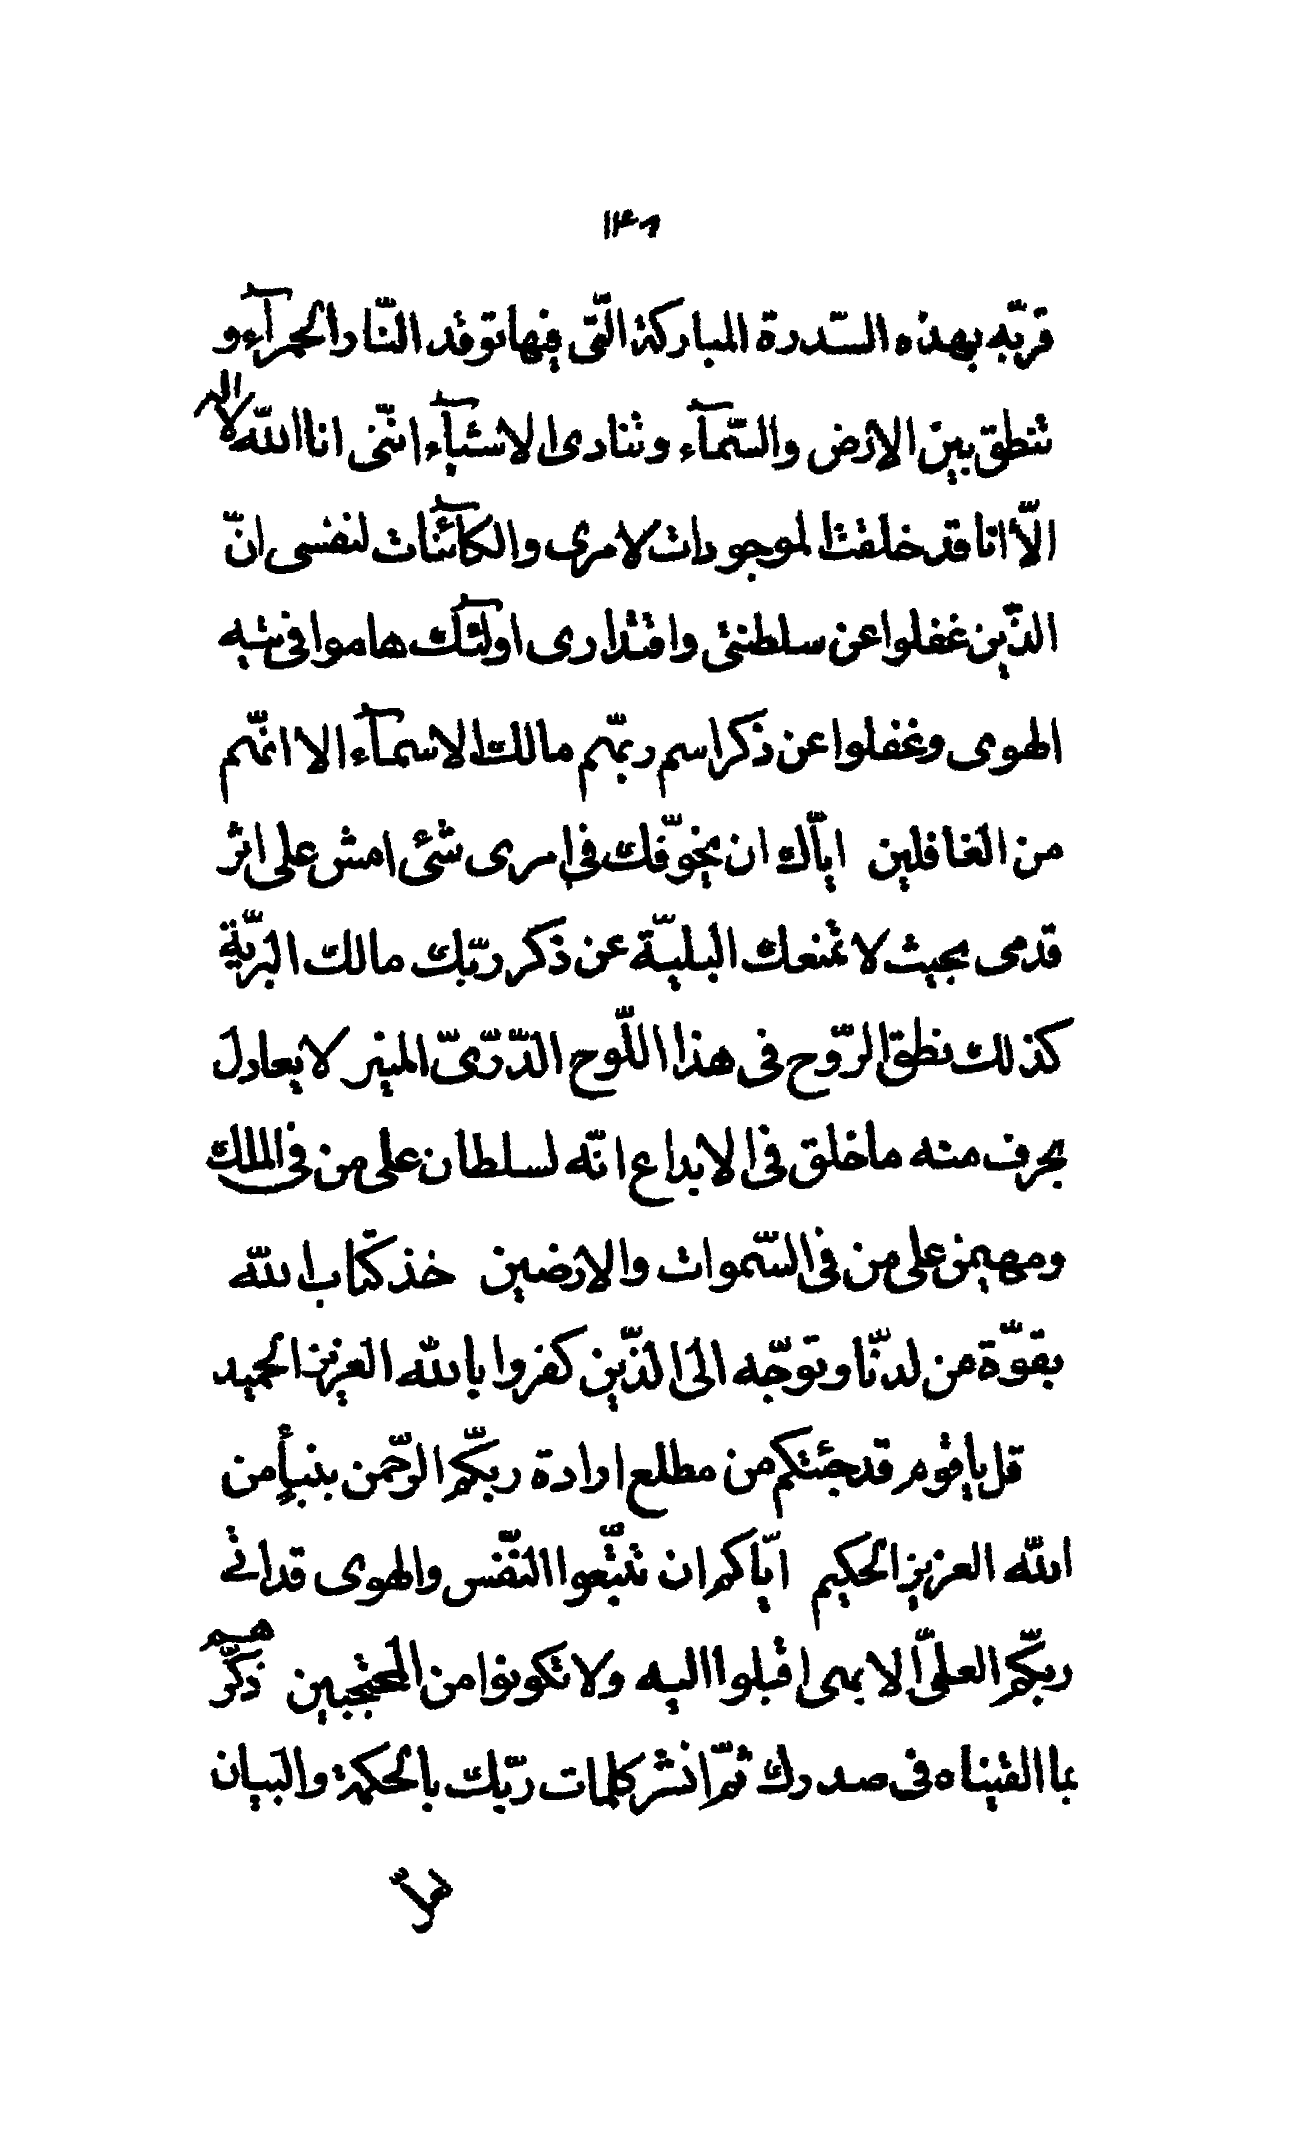 ۱۴۶
قربّه بهذه السّدرة المباركة الّتی فيها توقد النّار الحمرآء و
تنطق بين الارض والسّمآء وتنادی الاشيآء انّنی انا اللّه لا اله
الّا انا قد خلقت الموجودات لامری والكآئنات لنفسی انّ
الذّين غفلوا عن سلطنتی واقتداری اولئك هاموا فی تيه
الهوی وغفلوا عن ذكر اسم ربّهم مالك الاسمآء الا انّهم
من الغافلين ايّاك ان يخوّفك فی امری شئی امش علی اثر
قدمی بحيث لا تمنعك البليّة عن ذكر ربّك مالك البريّة
كذلك نطق الرّوح فی هذا اللّوح الدّرّیّ المنير لا يعادل
بحرف منه ما خلق فی الابداع انّه لسلطان علی من فی الملك
ومهيمن علی من فی السّموات والارضين خذ كتاب اللّه
بقوّة من لدنّا وتوجّه الی الذّين كفروا باللّه العزيز الحميد
قل يا قوم قد جئتكم من مطلع ارادة ربّكم الرّحمن بنبأٍ من
اللّه العزيز الحكيم ايّاكم ان تتّبعوا النّفس والهوی قد اتی
ربّكم العلیّ الابهی اقبلوا اليه ولا تكونوا من المحتجبين ذكّرهم
بما القيناه فی صدرك ثمّ انشر كلمات ربّك بالحكمة والبيان